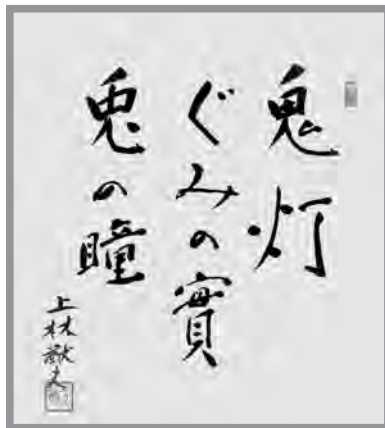 鬼灯
ぐみの實
兎の瞳
上林猷夫